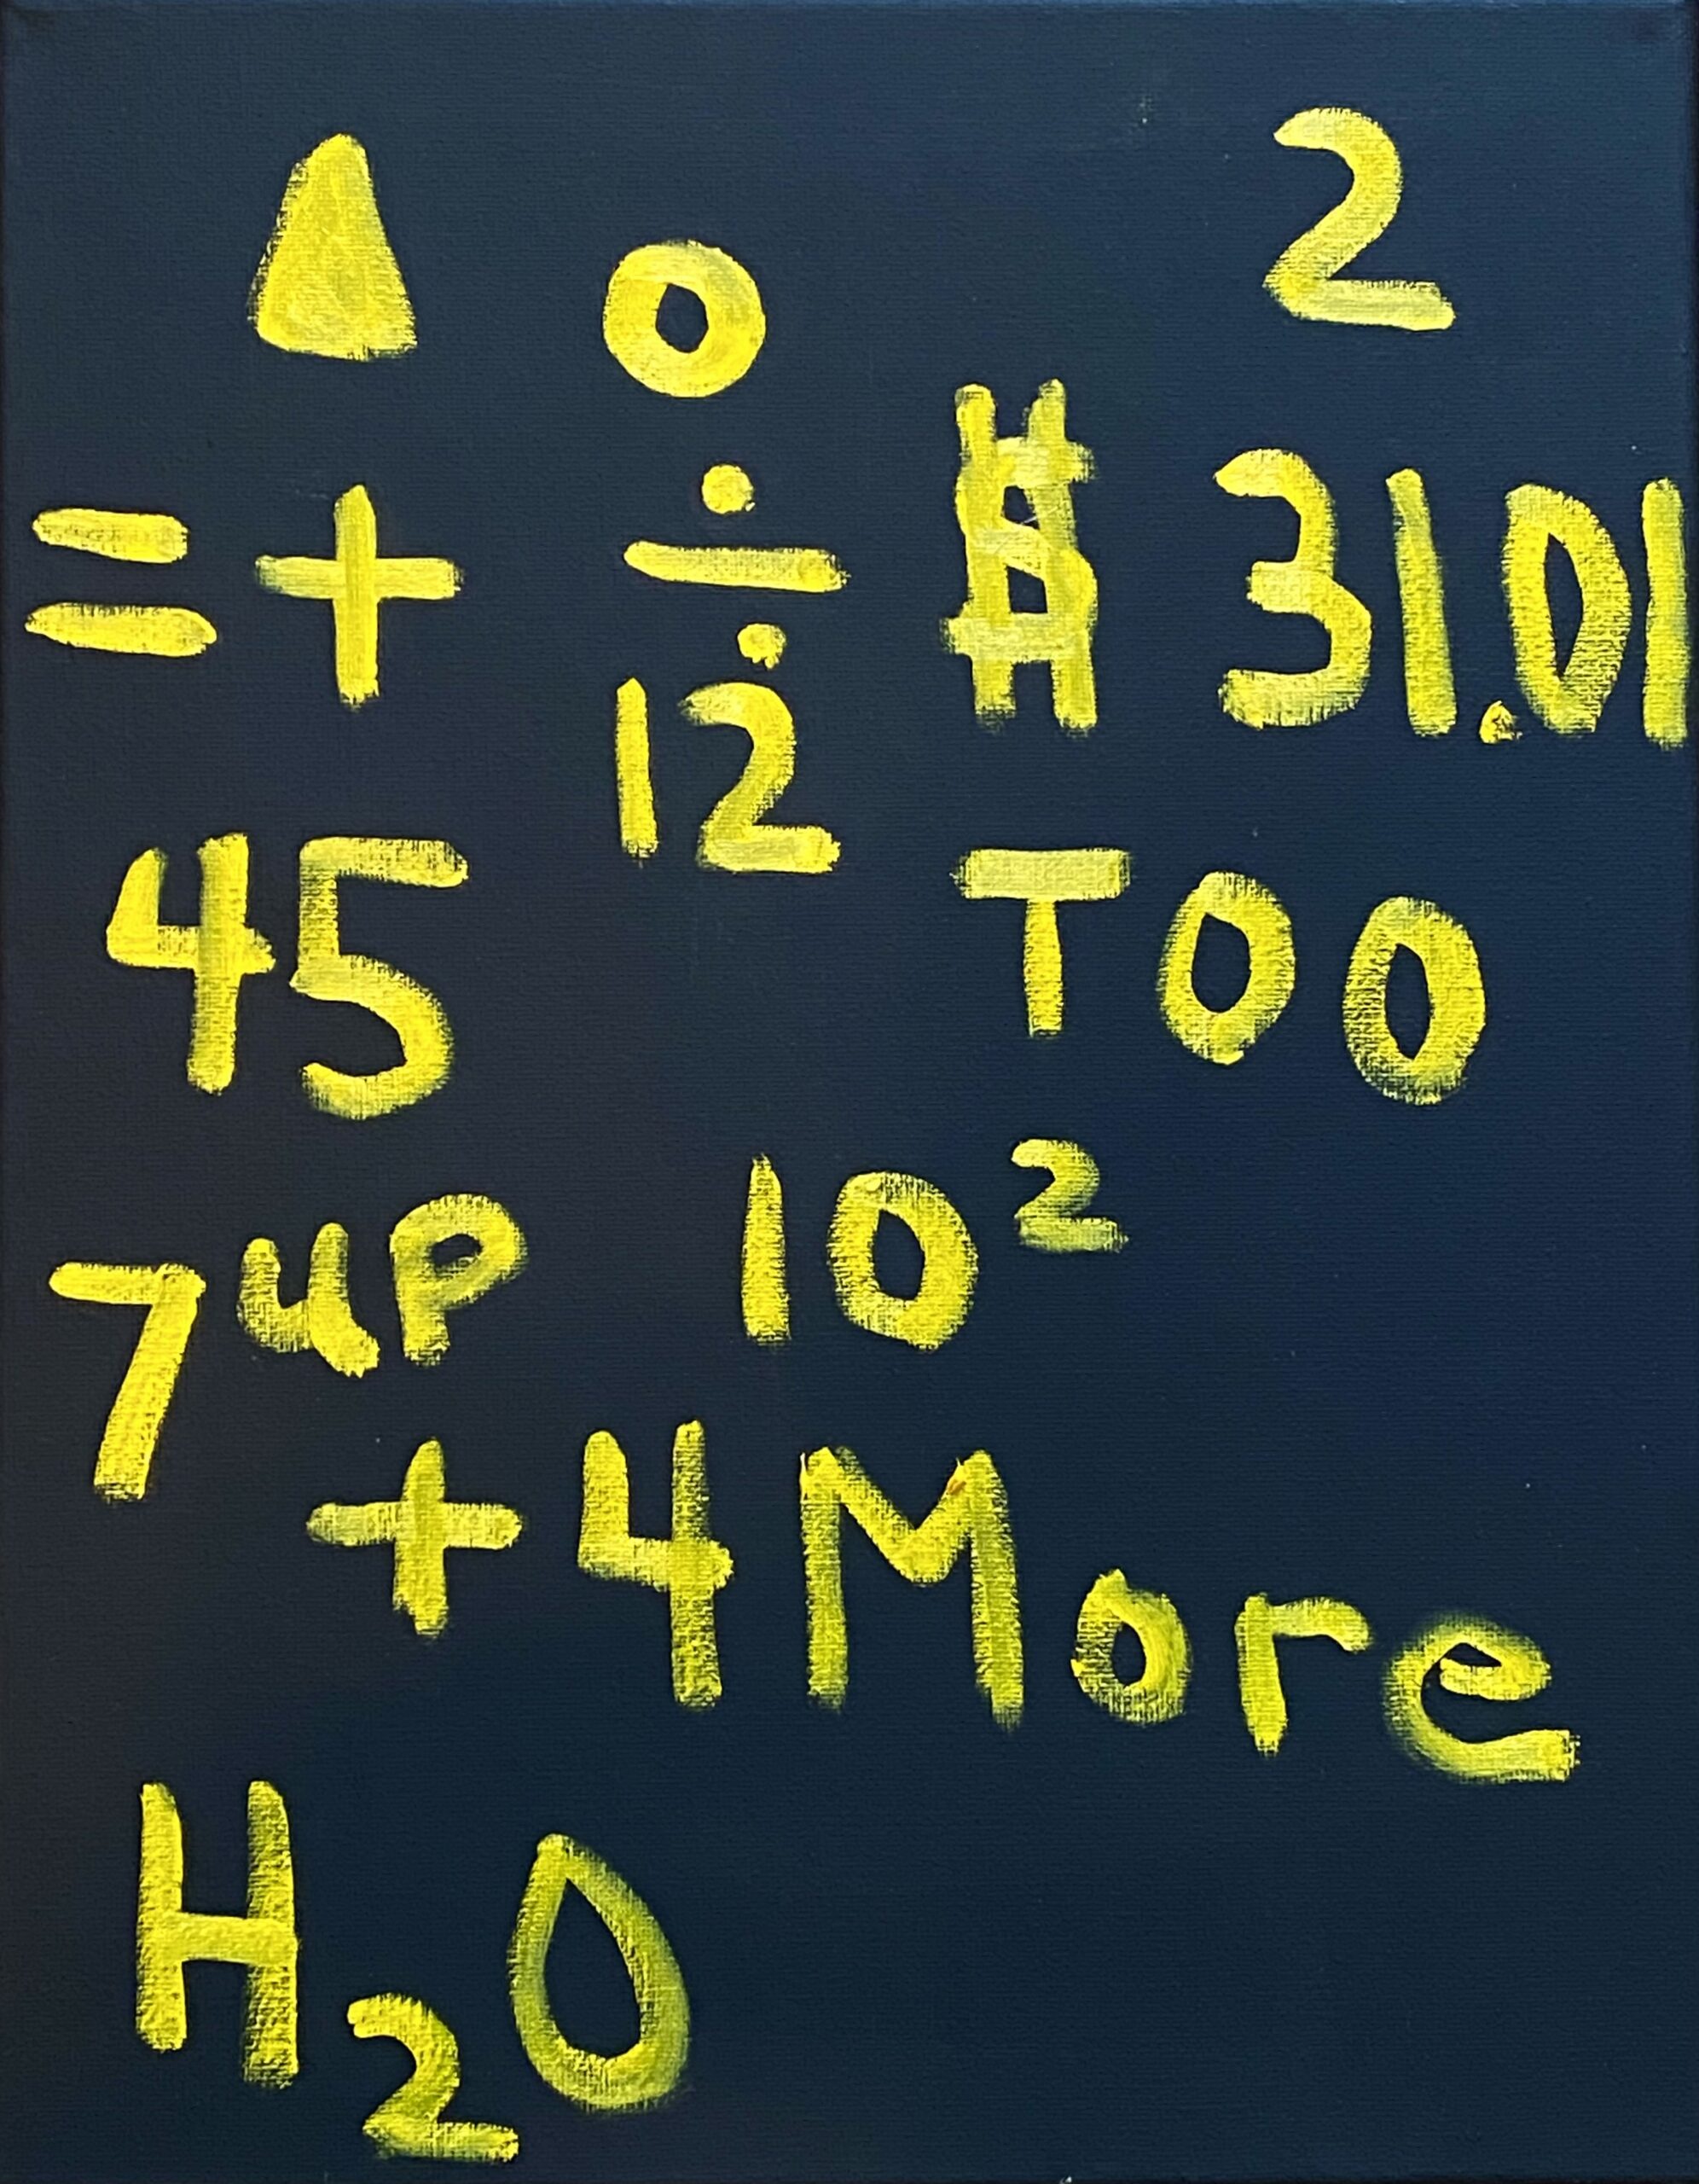 ▲ O 2
= + ÷ $ 31.01
12
45 TOO
7up 10²
+4More
H₂O